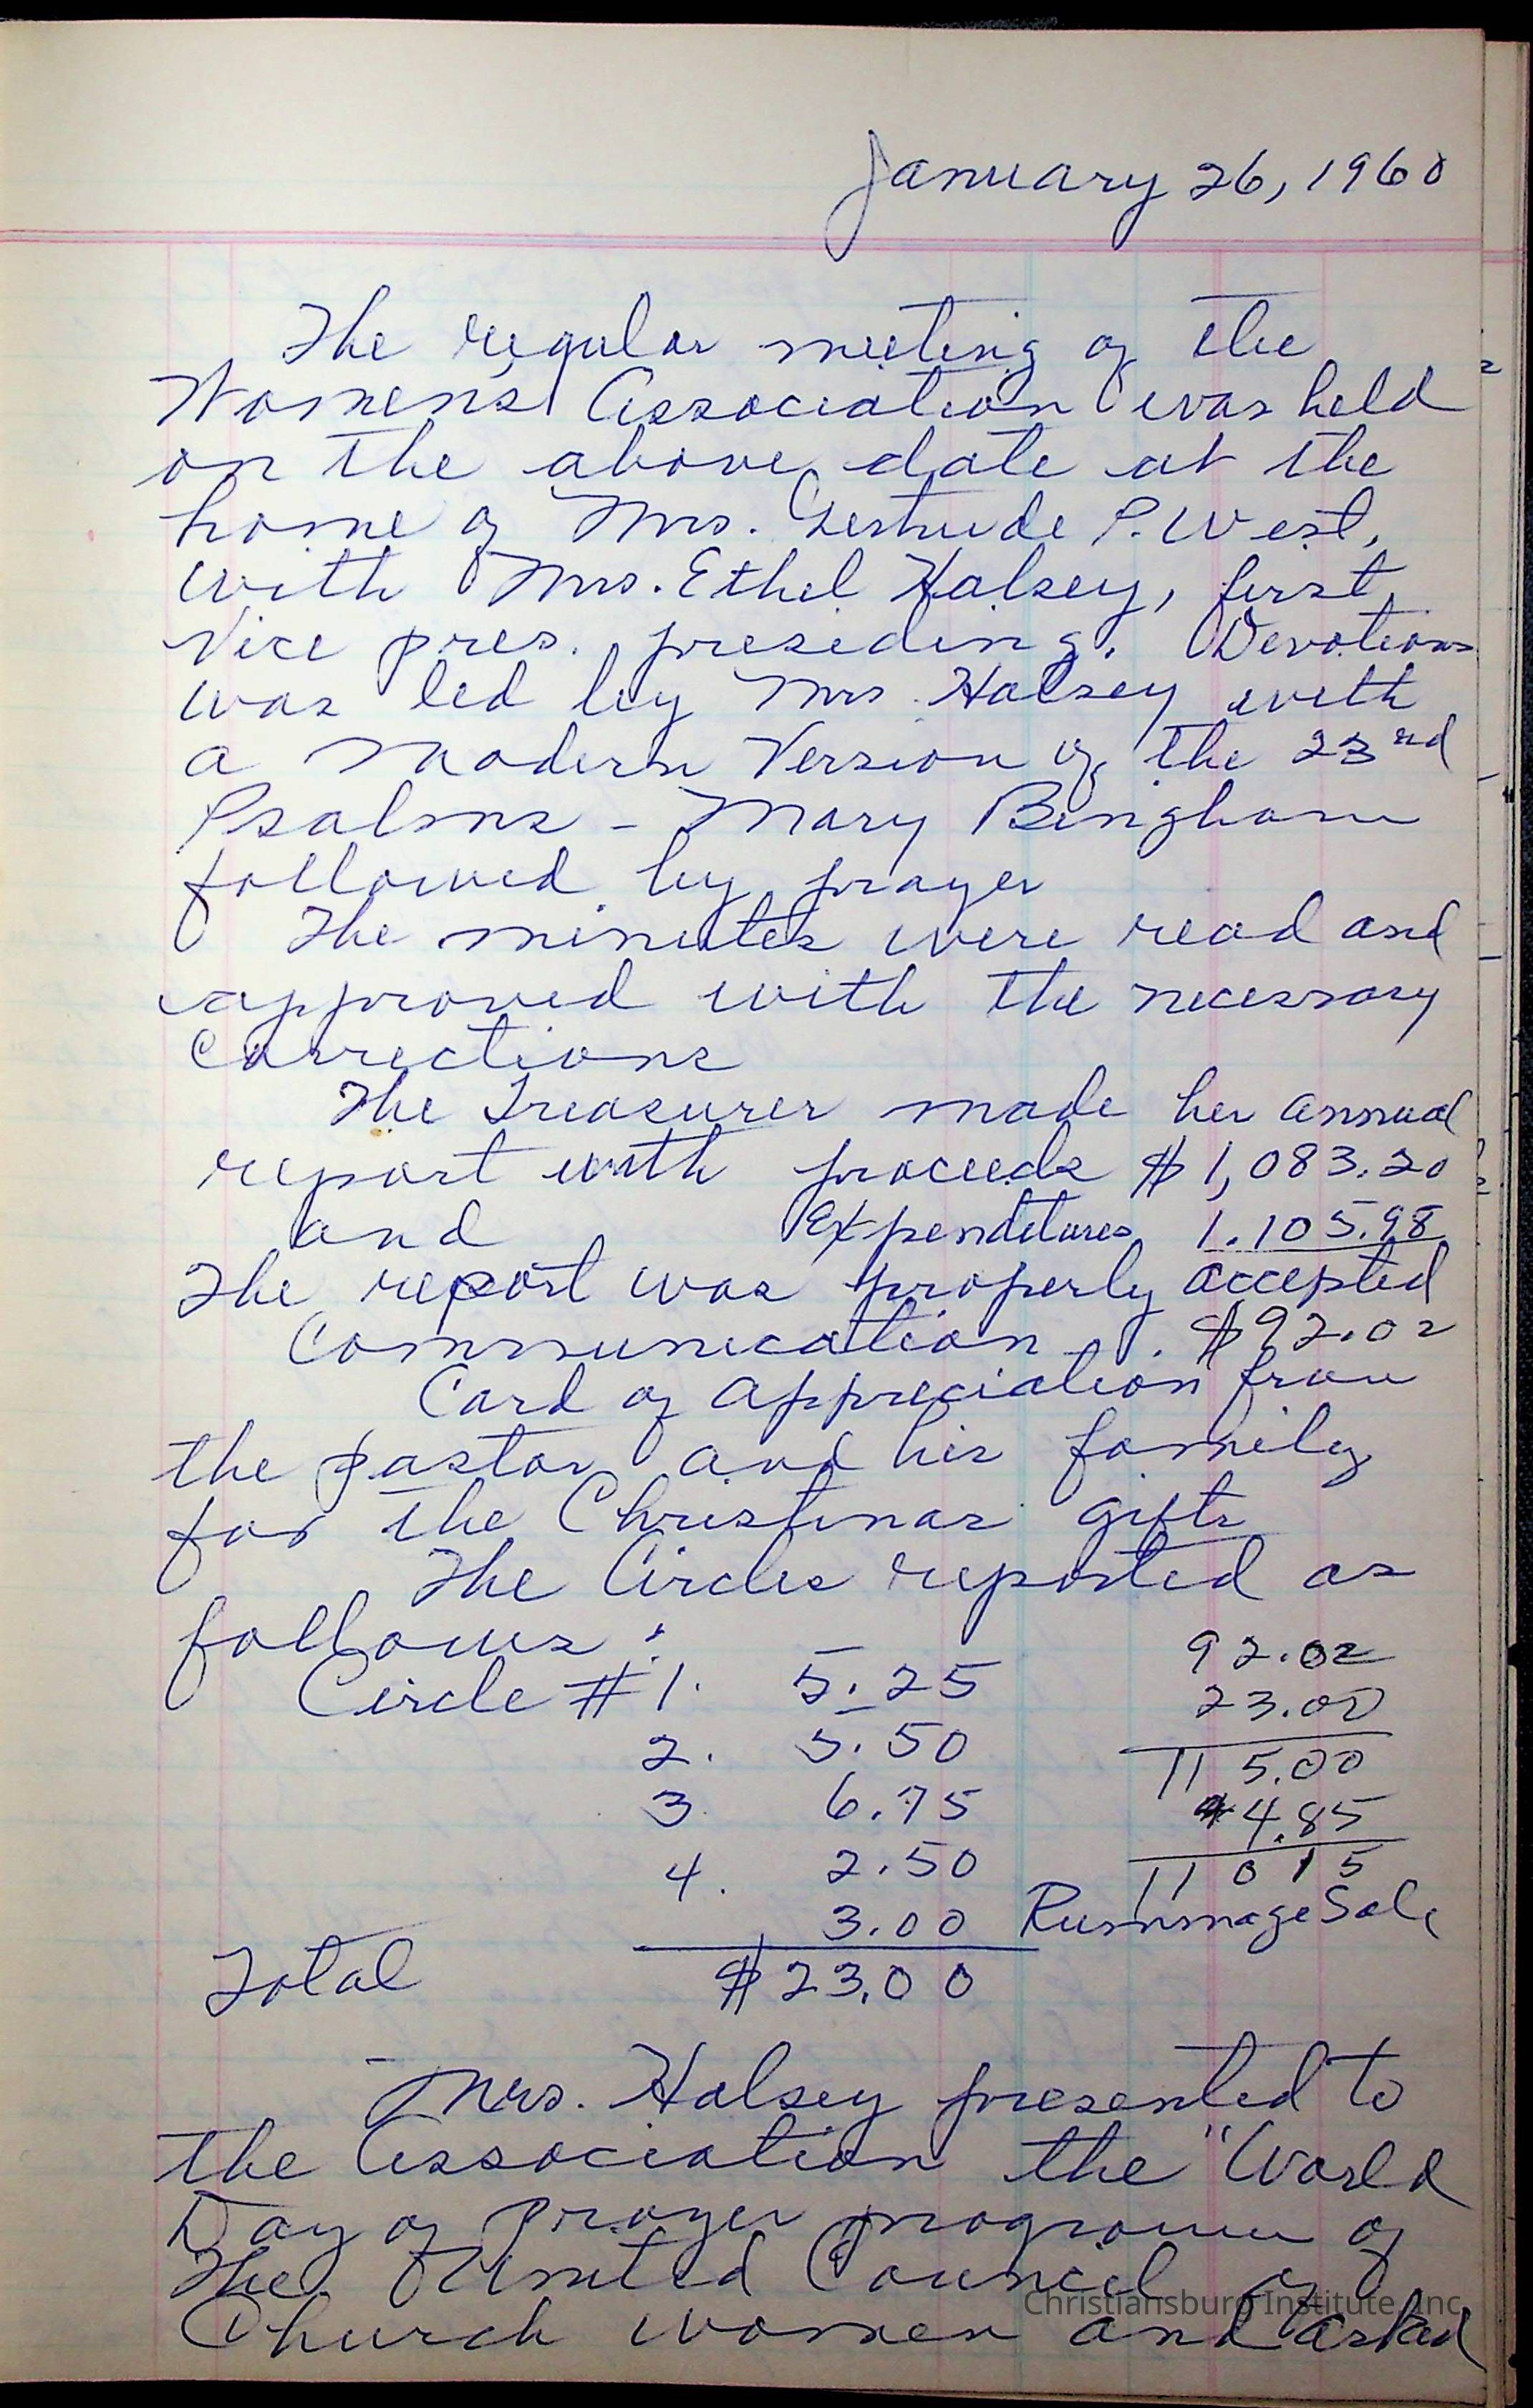 January 26, 1960
The regular meeting of the
Women's Association was held
on the above date at the
home of Mrs. Gertrude P. West,
with Mrs. Ethel Halsey, first
Vice pres. presiding. Devotions
was led by Mrs Halsey with
a Modern Version of the 23rd
Psalms - Mary Bingham
followed by prayer
The minutes were read and
approved with the necessary
Corrections
The Treasurer made her annual
report with proceeds $1,083.20
and Expenditures 1.105.98
The report was properly accepted
Communication . $92.02
Card of appreciation from
the pastor and his family
for the Christmas gifts
The Circles reported as
follows:
Circle #1. 5.25 92.02
2. 5.50 23.00
3. 6.75 115.00
4. 2.50 4.85
3.00 Rummage Sale 110 15
Total $23.00
Mrs. Halsey presented to
the Association the "World
Day of Prayer program of
The United Council of
Church women and asked
Christiansburg Institute, Inc.